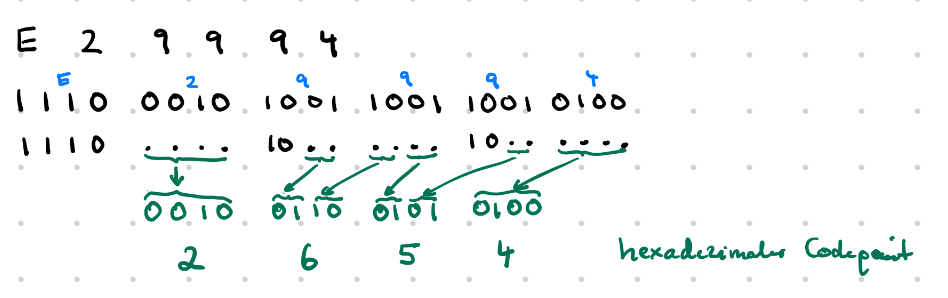 E 2 9 9 9 4
E 2 9 9 9 4
1110 0010 1001 1001 1001 0100
1110 .... 10.. .... 10.. ....
0010 0110 0101 0100
2 6 5 4 hexadezimaler Codepoint